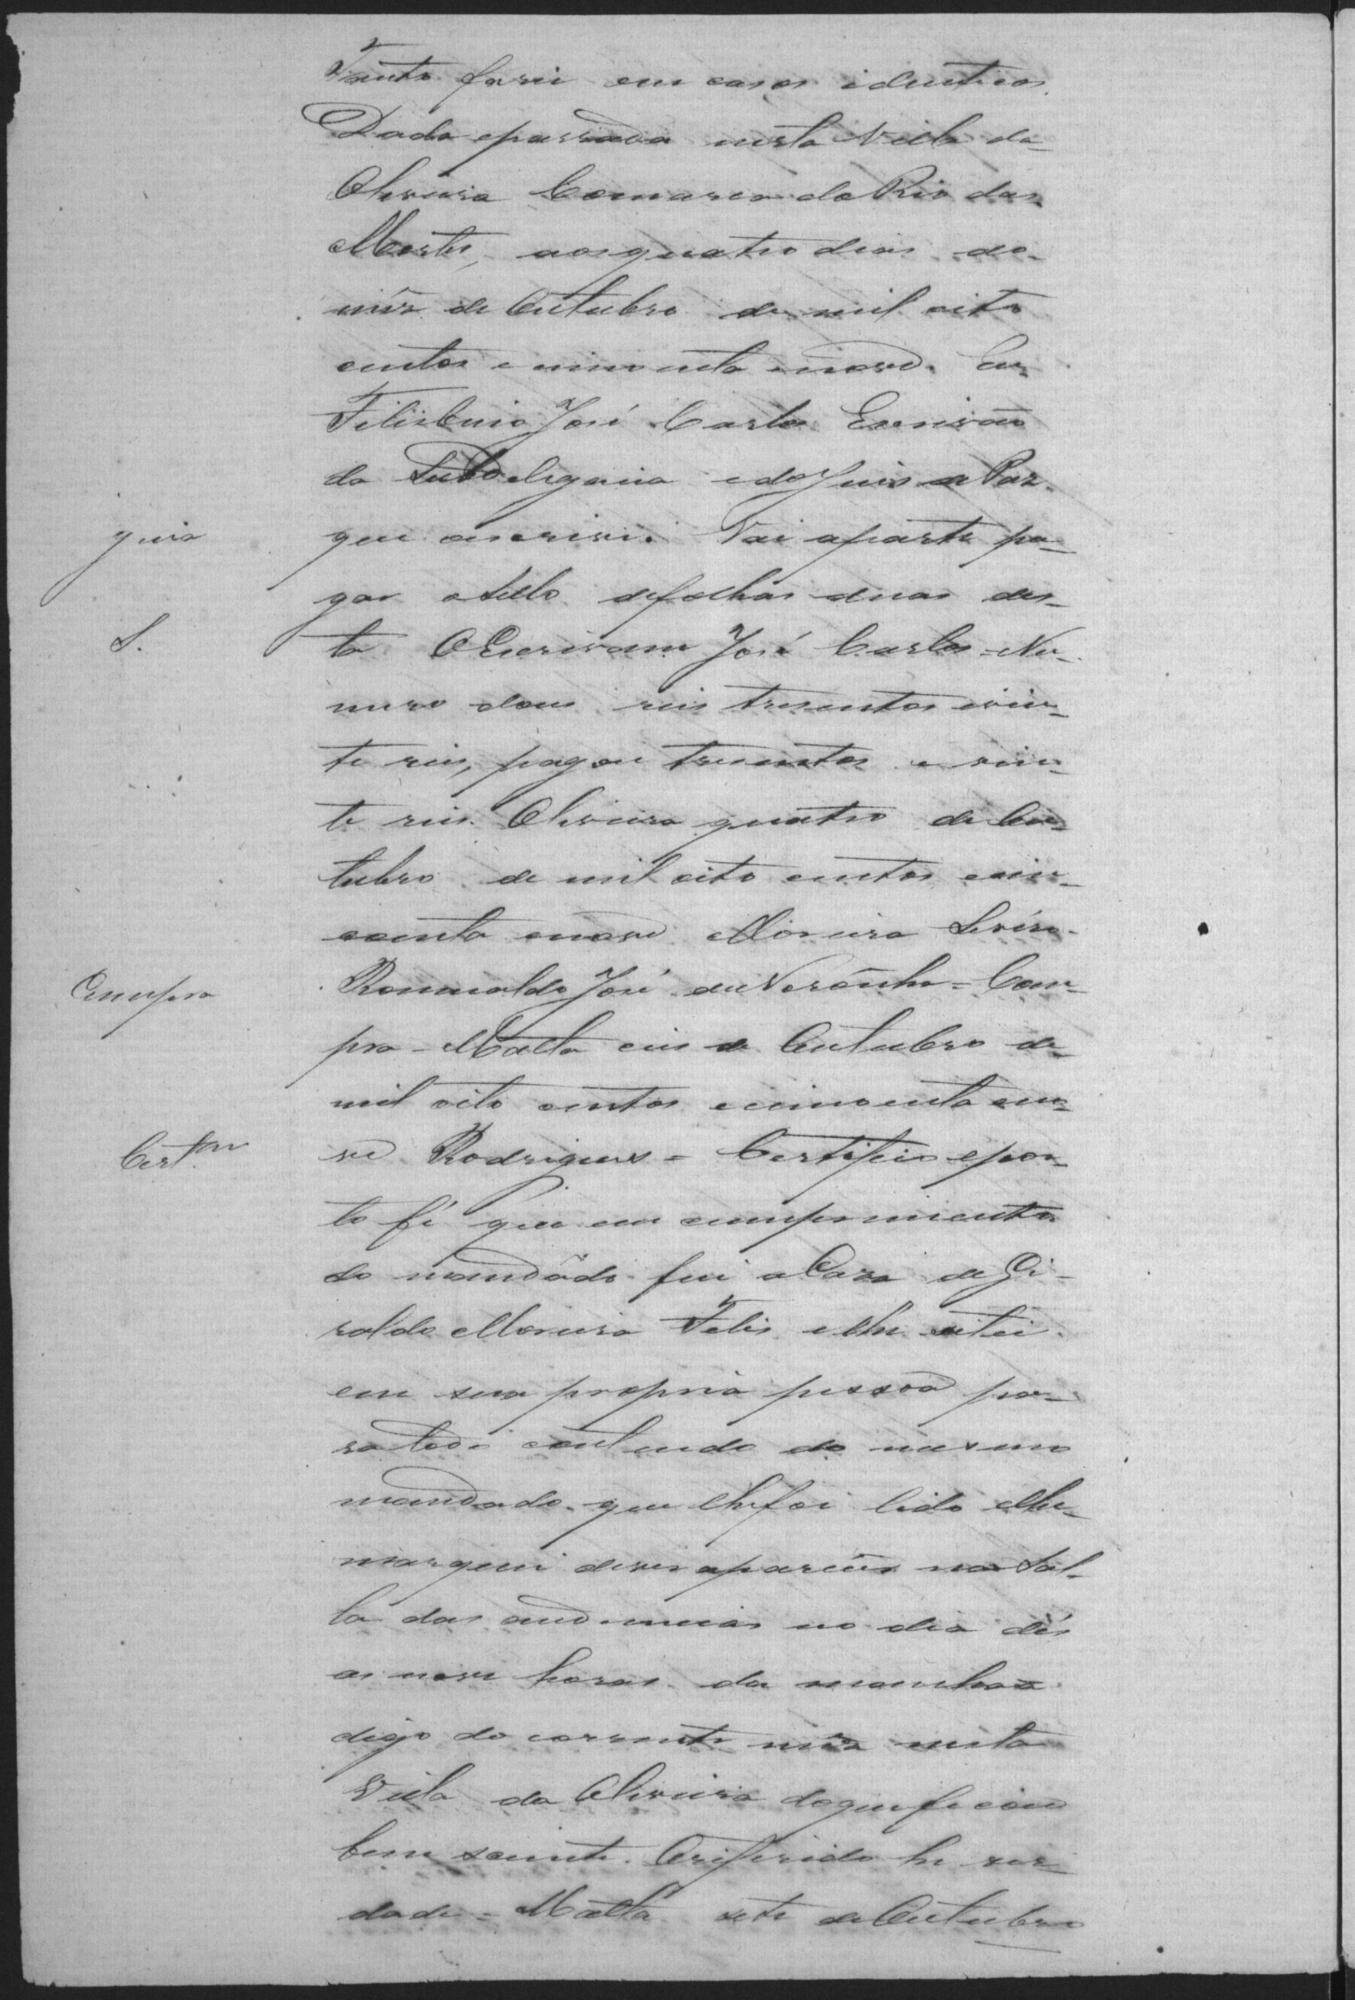 Tanto farei em casos identicos.
Dada epassada nesta Villa da
Oliveira Comarca do Rio das
Mortes, aos quatro dias do
mês de Outubro de mil oito
centos e cincoenta enove. Eu
José Carlos Escrivão
da Subdelegacia edo Juis de Paz
guia
que oescrevi. Vai aparte pa-
gar oSello defolhas duas des-
S.
ta OEscrivam José Carlos - Nu-
mero dous reis tresentos evin-
te reis, pagou tresentos e vin-
te reis. Oliveira quatro de Ou-
tubro de mil oito centos ecin-
coenta enove Moreira
Romualdo José de Noronha = Com-
Cumpra
pra - Matta seis de Outubro de
mil oito centos ecincoenta eno-
Cert.am
ve Rodrigues = Certifico epor-
to fé que em cumprimento
do mandado fui aCaza de Gi-
raldo Moreira Felis elhe citei
em sua propria pessoa pa-
ra todo contendo do mesmo
mandado que lhefoi lido elhe
marquei aparecer na Sal-
la das audiencias no dia dés
as nove horas da manhaa
digo do corrente mês nesta
Villa da Oliveira doqueficou
bem sciente. Oreferido he ver-
dade = Matta sete deOutubro